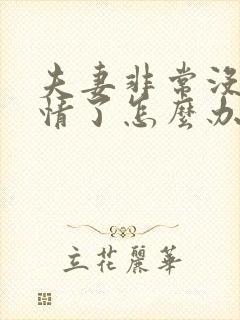 夫妻非常没
情了怎麼办
立花麗華